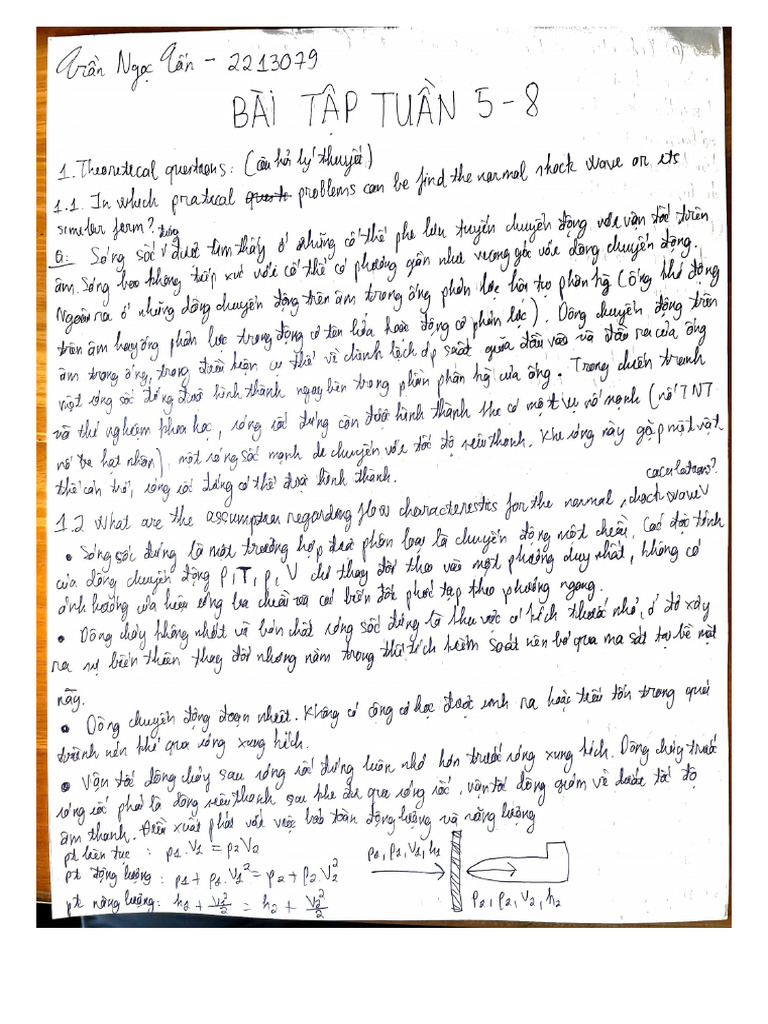 Trần Ngọc Tấn - 2213079
BÀI TẬP TUẦN 5-8
1. Theoretical questions: (câu hỏi lý thuyết)
1.1. In which pratical problems can be find the normal shock wave or its
similar form?
Sóng sốc đứng được tìm thấy ở những cố thể phi lưu tuyến chuyển động với vận tốc trên
âm. Sóng bao không tiếp xúc với cố thể có phương gần như vuông góc với dòng chuyển động.
Ngoài ra ở những dòng chuyển động trên âm trong ống phản lực hội tụ phân kỳ (ống khí động
trên âm hay ống phản lực trong động cơ tên lửa hoặc động cơ phản lực). Dòng chuyển động trên
âm trong ống, trong điều kiện cụ thể về chênh lệch áp suất giữa đầu vào và đầu ra của ống
một sóng sốc đứng được hình thành ngay bên trong phần phân kỳ của ống. Trong chiến tranh
và thí nghiệm khoa học, sóng sốc đứng còn được hình thành khi có một vụ nổ mạnh (nổ TNT
nổ hạt nhân), một sóng sốc mạnh di chuyển với tốc độ siêu thanh. Khi sóng này gặp một vật
thể cản trở, sóng sốc đứng có thể được hình thành.
1.2 What are the assumption regarding flow characteristics for the normal shock wave caculations?
• Sóng sốc đứng là một trường hợp được phân loại là chuyển động một chiều. Các đặc tính
của dòng chuyển động ρ, T, p, V chỉ thay đổi theo vào một phương duy nhất, không có
ảnh hưởng của hiệu ứng ba chiều và các biến đổi phức tạp theo phương ngang.
• Dòng chảy không nhớt vì bản chất sóng sốc đứng là khu vực có kích thước nhỏ, ở đó xảy
ra sự biến thiên thay đổi nhưng nằm trong thể tích kiểm soát nên bỏ qua ma sát tại bề mặt
này.
• Dòng chuyển động đoạn nhiệt. Không có công cơ học được sinh ra hoặc tiêu tốn trong quá
trình nén khi qua sóng xung kích.
• Vận tốc dòng chảy sau sóng sốc đứng luôn nhỏ hơn trước sóng xung kích. Dòng chảy trước
sóng sốc phải là dòng siêu thanh sau khi đi qua sóng sốc, vận tốc dòng giảm về dưới tốc độ
âm thanh. Điều xuất phát với việc bảo toàn động lượng và năng lượng
pt liên tục : ρ1.V1 = ρ2V2
pt động lượng : p1 + ρ1.V1² = p2 + ρ2V2²
pt năng lượng: h1 + V1²/2 = h2 + V2²/2
p1, ρ1, V1, h1
p2, ρ2, V2, h2